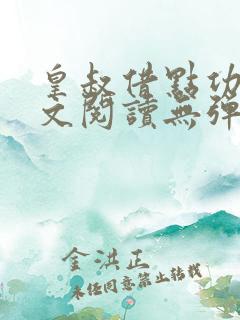 皇叔借點功
文閱讀無彈
金洪正
未经同意禁止转载